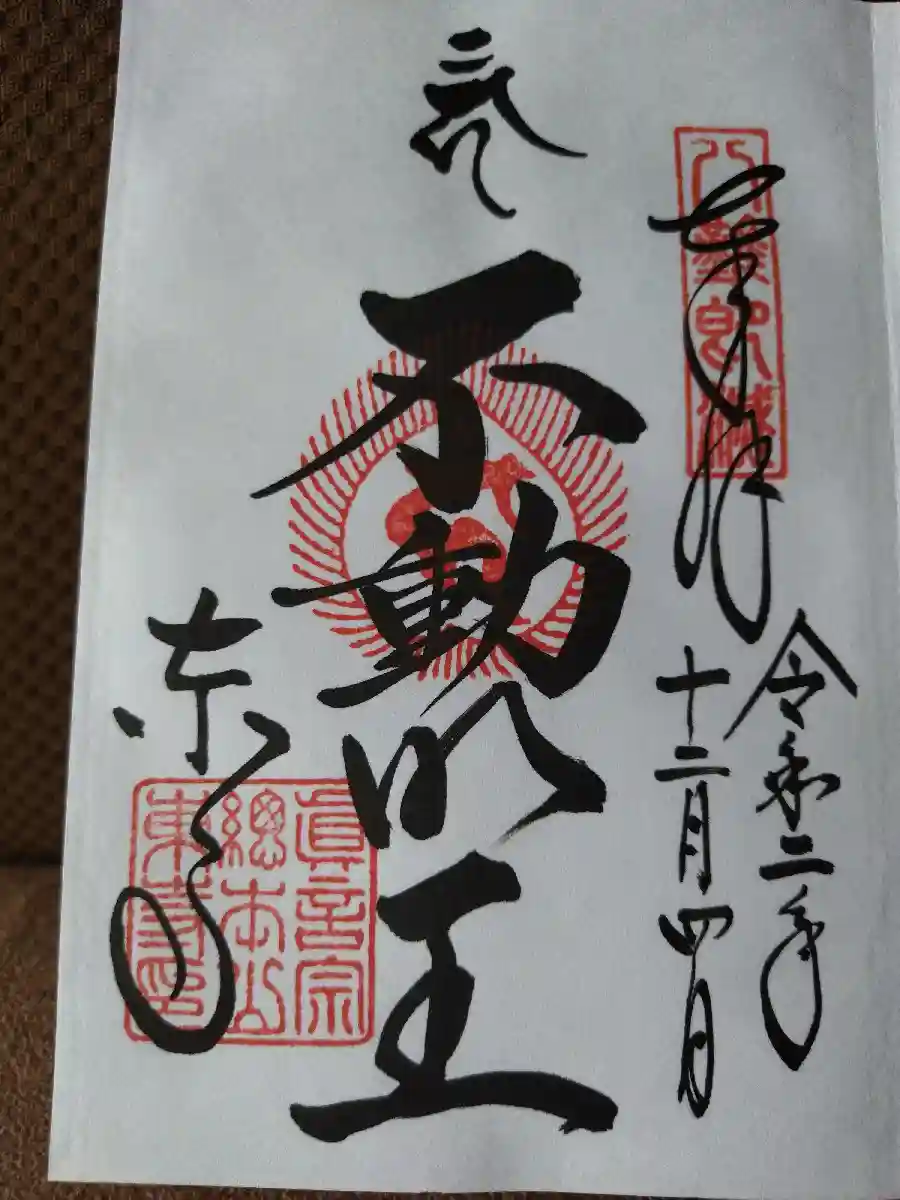 奉拝
令和二年
十二月四日
不動明王
東寺
眞言宗
總本山
東寺印